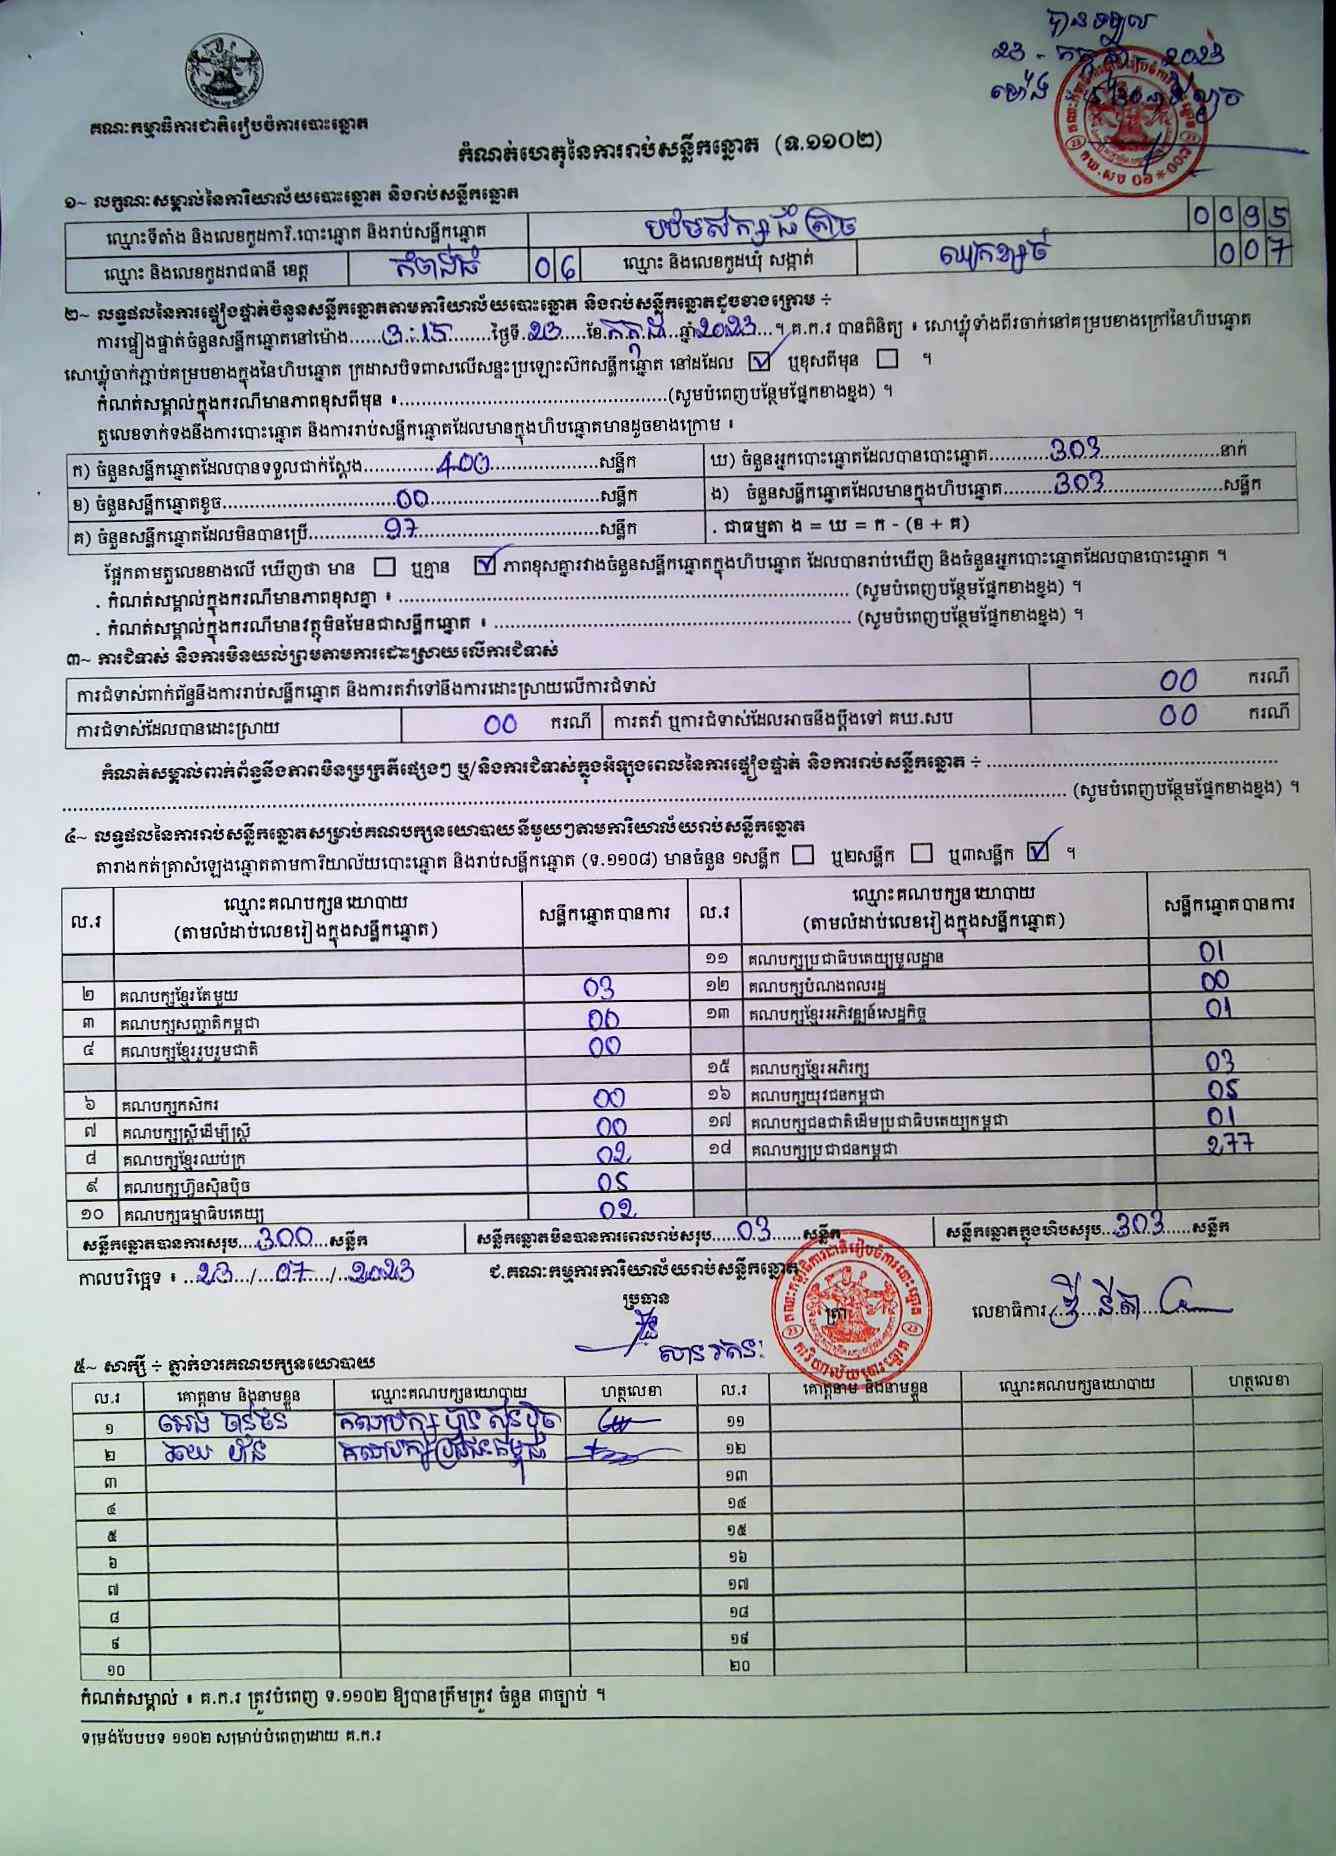 បានទទួល
23 - កក្កដា - 2023
ម៉ោង
គណៈកម្មាធិការជាតិរៀបចំការបោះឆ្នោត
កំណត់ហេតុនៃការរាប់សន្លឹកឆ្នោត (ទ.១១០២)
១~ លក្ខណៈសម្គាល់នៃការិយាល័យបោះឆ្នោត និងរាប់សន្លឹកឆ្នោត
ឈ្មោះទីតាំង និងលេខកូដការិ.បោះឆ្នោត និងរាប់សន្លឹកឆ្នោត បឋមសិក្សាធំត្រាច 0095
ឈ្មោះ និងលេខកូដរាជធានី ខេត្ត កំពង់ធំ 06 ឈ្មោះ និងលេខកូដឃុំ សង្កាត់ ឈូកខ្សាច់ 007
២~ លទ្ធផលនៃការផ្ទៀងផ្ទាត់ចំនួនសន្លឹកឆ្នោតតាមការិយាល័យបោះឆ្នោត និងរាប់សន្លឹកឆ្នោតដូចខាងក្រោម ៖
ការផ្ទៀងផ្ទាត់ចំនួនសន្លឹកឆ្នោតនៅម៉ោង......3:15.........ថ្ងៃទី.23...ខែ.កក្កដា...ឆ្នាំ2023...។ គ.ក.រ បានពិនិត្យ ៖ សោឃ្លុំទាំងពីរចាក់នៅគម្របខាងក្រៅនៃហិបឆ្នោត
សោឃ្លុំចាក់ភ្ជាប់គម្របខាងក្នុងនៃហិបឆ្នោត ក្រដាសបិទពាសលើសន្ទះប្រឡោះស៊កសន្លឹកឆ្នោត នៅដដែល ☑ ឬខុសពីមុន ☐ ។
កំណត់សម្គាល់ក្នុងករណីមានភាពខុសពីមុន ៖......................................................(សូមបំពេញបន្ថែមផ្នែកខាងខ្នង) ។
តួលេខទាក់ទងនឹងការបោះឆ្នោត និងការរាប់សន្លឹកឆ្នោតដែលមានក្នុងហិបឆ្នោតមានដូចខាងក្រោម ៖
ក) ចំនួនសន្លឹកឆ្នោតដែលបានទទួលជាក់ស្តែង...............400......................សន្លឹក ឃ) ចំនួនអ្នកបោះឆ្នោតដែលបានបោះឆ្នោត............303........................នាក់
ខ) ចំនួនសន្លឹកឆ្នោតខូច...................................00..................................សន្លឹក ង) ចំនួនសន្លឹកឆ្នោតដែលមានក្នុងហិបឆ្នោត..........303........................សន្លឹក
គ) ចំនួនសន្លឹកឆ្នោតដែលមិនបានប្រើ...............97....................................សន្លឹក . ជាធម្មតា ង = ឃ = ក - (ខ + គ)
ផ្អែកតាមតួលេខខាងលើ ឃើញថា មាន ☐ ឬគ្មាន ☑ ភាពខុសគ្នារវាងចំនួនសន្លឹកឆ្នោតក្នុងហិបឆ្នោត ដែលបានរាប់ឃើញ និងចំនួនអ្នកបោះឆ្នោតដែលបានបោះឆ្នោត ។
. កំណត់សម្គាល់ក្នុងករណីមានភាពខុសគ្នា ៖ ........................................................................................... (សូមបំពេញបន្ថែមផ្នែកខាងខ្នង) ។
. កំណត់សម្គាល់ក្នុងករណីមានវត្ថុមិនមែនជាសន្លឹកឆ្នោត ៖ ....................................................................... (សូមបំពេញបន្ថែមផ្នែកខាងខ្នង) ។
៣~ ការជំទាស់ និងការមិនយល់ព្រមតាមការដោះស្រាយលើការជំទាស់
ការជំទាស់ពាក់ព័ន្ធនឹងការរាប់សន្លឹកឆ្នោត និងការតវ៉ាទៅនឹងការដោះស្រាយលើការជំទាស់ 00 ករណី
ការជំទាស់ដែលបានដោះស្រាយ 00 ករណី ការតវ៉ា ឬការជំទាស់ដែលអាចនឹងប្តឹងទៅ គឃ.សប 00 ករណី
កំណត់សម្គាល់ពាក់ព័ន្ធនឹងភាពមិនប្រក្រតីផ្សេងៗ ឬ/និងការជំទាស់ក្នុងអំឡុងពេលនៃការផ្ទៀងផ្ទាត់ និងការរាប់សន្លឹកឆ្នោត ៖ ...........................................................
........................................................................................................................ (សូមបំពេញបន្ថែមផ្នែកខាងខ្នង) ។
៤~ លទ្ធផលនៃការរាប់សន្លឹកឆ្នោតសម្រាប់គណបក្សនយោបាយនីមួយៗតាមការិយាល័យរាប់សន្លឹកឆ្នោត
តារាងកត់ត្រាសំឡេងឆ្នោតតាមការិយាល័យបោះឆ្នោត និងរាប់សន្លឹកឆ្នោត (ទ.១១០៨) មានចំនួន ១សន្លឹក ☐ ឬ២សន្លឹក ☐ ឬ៣សន្លឹក ☑ ។
ល.រ ឈ្មោះគណបក្សនយោបាយ (តាមលំដាប់លេខរៀងក្នុងសន្លឹកឆ្នោត) សន្លឹកឆ្នោតបានការ ល.រ ឈ្មោះគណបក្សនយោបាយ (តាមលំដាប់លេខរៀងក្នុងសន្លឹកឆ្នោត) សន្លឹកឆ្នោតបានការ
១១ គណបក្សប្រជាធិបតេយ្យមូលដ្ឋាន 01
២ គណបក្សខ្មែរតែមួយ 03 ១២ គណបក្សបំណងពលរដ្ឋ 00
៣ គណបក្សសញ្ជាតិកម្ពុជា 00 ១៣ គណបក្សខ្មែរអភិវឌ្ឍន៍សេដ្ឋកិច្ច 01
៤ គណបក្សខ្មែររួបរួមជាតិ 00
១៥ គណបក្សខ្មែរអភិរក្ស 03
៦ គណបក្សកសិករ 00 ១៦ គណបក្សយុវជនកម្ពុជា 05
៧ គណបក្សស្ត្រីដើម្បីស្ត្រី 00 ១៧ គណបក្សជនជាតិដើមប្រជាធិបតេយ្យកម្ពុជា 01
៨ គណបក្សខ្មែរឈប់ក្រ 02 ១៨ គណបក្សប្រជាជនកម្ពុជា 277
៩ គណបក្សហ៊្វុនស៊ិនប៉ិច 05
១០ គណបក្សធម្មាធិបតេយ្យ 02
សន្លឹកឆ្នោតបានការសរុប...300...សន្លឹក សន្លឹកឆ្នោតមិនបានការពេលរាប់សរុប.....03......សន្លឹក សន្លឹកឆ្នោតក្នុងហិបសរុប...303......សន្លឹក
កាលបរិច្ឆេទ ៖ ..23.../...07..../..2023 ជ.គណៈកម្មការការិយាល័យរាប់សន្លឹកឆ្នោត
ប្រធាន ត្រា លេខាធិការ
សាន រតនៈ
៥~ សាក្សី ៖ ភ្នាក់ងារគណបក្សនយោបាយ
ល.រ គោត្តនាម និងនាមខ្លួន ឈ្មោះគណបក្សនយោបាយ ហត្ថលេខា ល.រ គោត្តនាម និងនាមខ្លួន ឈ្មោះគណបក្សនយោបាយ ហត្ថលេខា
១ គណបក្ស ហ៊្វុនស៊ិនប៉ិច ១១
២ គណបក្សប្រជាជនកម្ពុជា ១២
៣ ១៣
៤ ១៤
៥ ១៥
៦ ១៦
៧ ១៧
៨ ១៨
៩ ១៩
១០ ២០
កំណត់សម្គាល់ ៖ គ.ក.រ ត្រូវបំពេញ ទ.១១០២ ឱ្យបានត្រឹមត្រូវ ចំនួន ៣ច្បាប់ ។
ទម្រង់បែបបទ ១១០២ សម្រាប់បំពេញដោយ គ.ក.រ